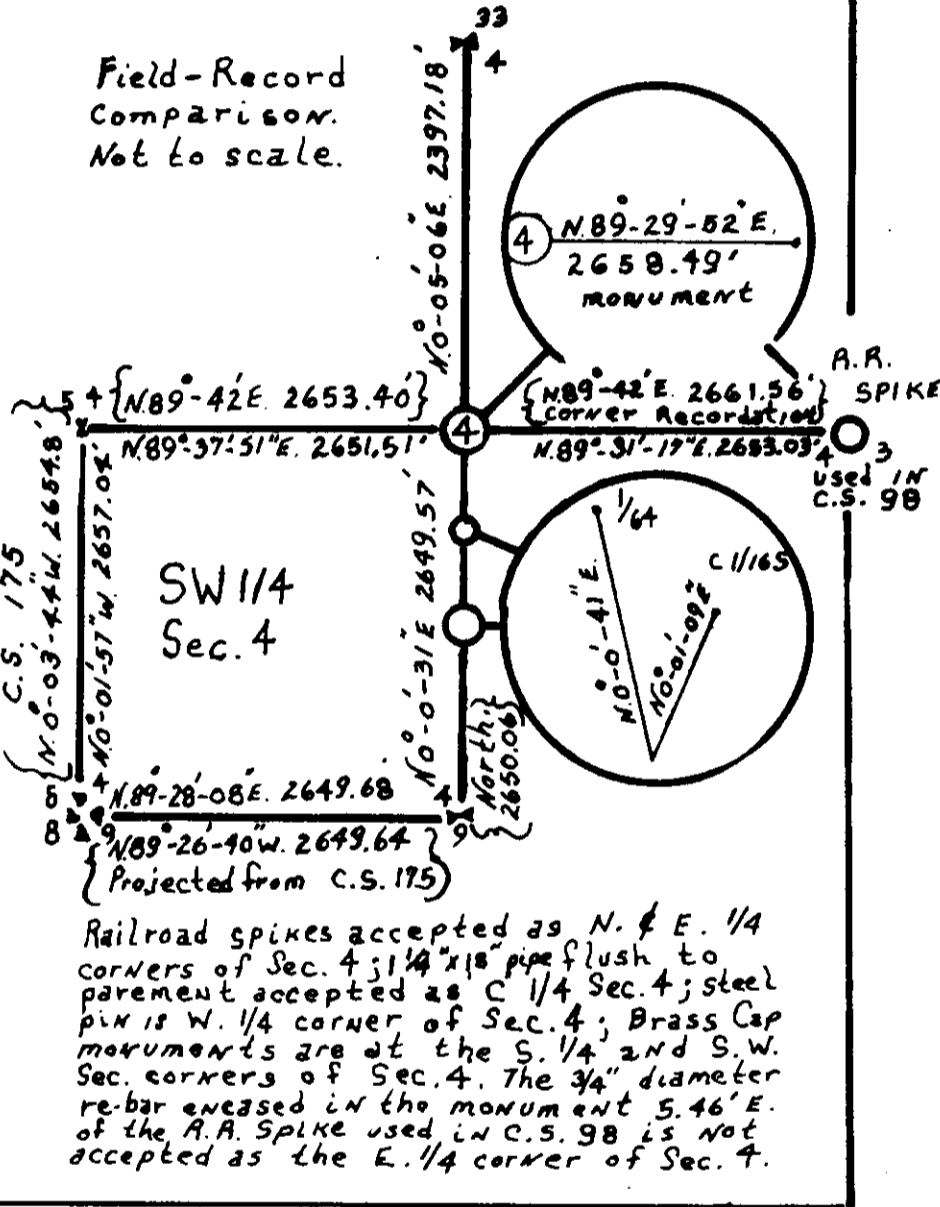 33
4
Field-Record
Comparison.
Not to scale.
N.0°-05'-06"E. 2397.18'
4 N.89°-29'-52"E.
2658.49'
monument
R.R.
SPIKE
5 4 {N.89°-42'E. 2653.40'}
{N.89°-42'E. 2661.56'}
{corner Recordation}
N.89°-37'-51"E. 2651.51'
4
N.89°-31'-17"E. 2653.03'
4 3
used IN
C.S. 98
C.S. 175
{N.0°-03'-44"W. 2654.8'}
N.0°-01'-57"W. 2657.04'
SW 1/4
Sec. 4
N.0°-0'-31"E 2649.57'
1/64
C 1/16 S
N.0°-0'-41"E.
N.0°-01'-09"E
{North.}
{2650.06}
5 4
8 9
N.89°-28'-08"E. 2649.68
4
9
{N.89°-26'-40"W. 2649.64}
{Projected from C.S. 175}
Railroad spikes accepted as N. & E. 1/4
corners of Sec. 4; 1 1/4" x 18" pipe flush to
pavement accepted as C 1/4 Sec. 4; steel
pin is W. 1/4 corner of Sec. 4; Brass Cap
monuments are at the S. 1/4 and S.W.
Sec. corners of Sec. 4. The 3/4" diameter
re-bar encased in the monument 5.46' E.
of the R.R. Spike used in C.S. 98 is not
accepted as the E. 1/4 corner of Sec. 4.